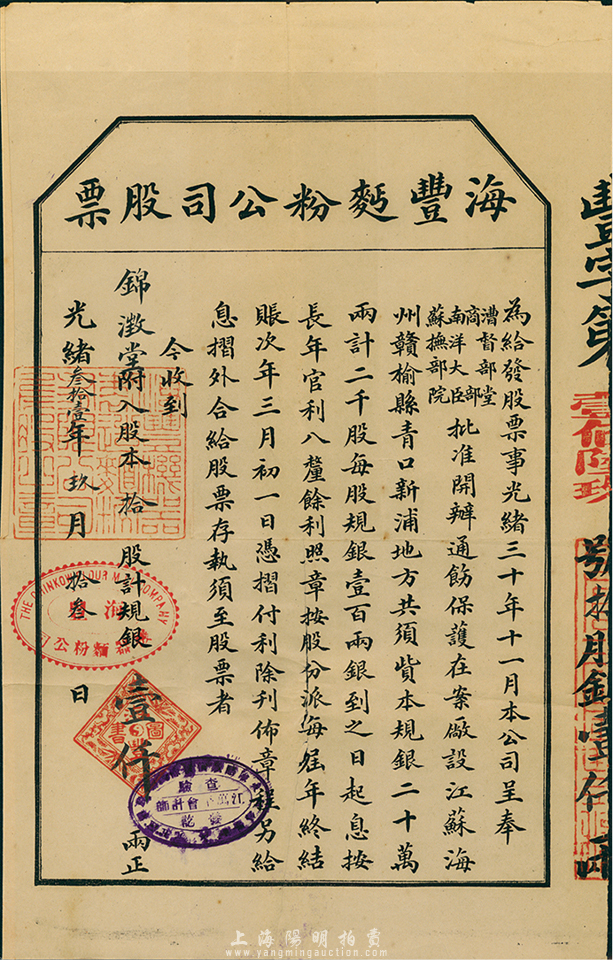 海豐麪粉公司股票
為給發股票事光緒三十年十一月本公司呈奉
漕督部堂
商部
南洋大臣
蘇撫部院
批准開辦通飭保護在案廠設江蘇海
州贛榆縣青口新浦地方共須貲本規銀二十萬
兩計二千股每股規銀壹百兩銀到之日起息按
長年官利八釐餘利照章按股份派每屆年終結
賬次年三月初一日憑摺付利除刋佈章程另給
息摺外合給股票存執須至股票者
今收到
錦澂堂附入股本拾股計規銀壹仟兩正
光緒叁拾壹年玖月拾叁日
豐字第壹佰陸玖號拾股銀壹仟兩
THE CHINKOW FLOUR MILL COMPANY
海豐
麵粉公司
圖書
查驗
會計師
江萬平
訖
上海陽明拍賣
www.yangmingauction.com